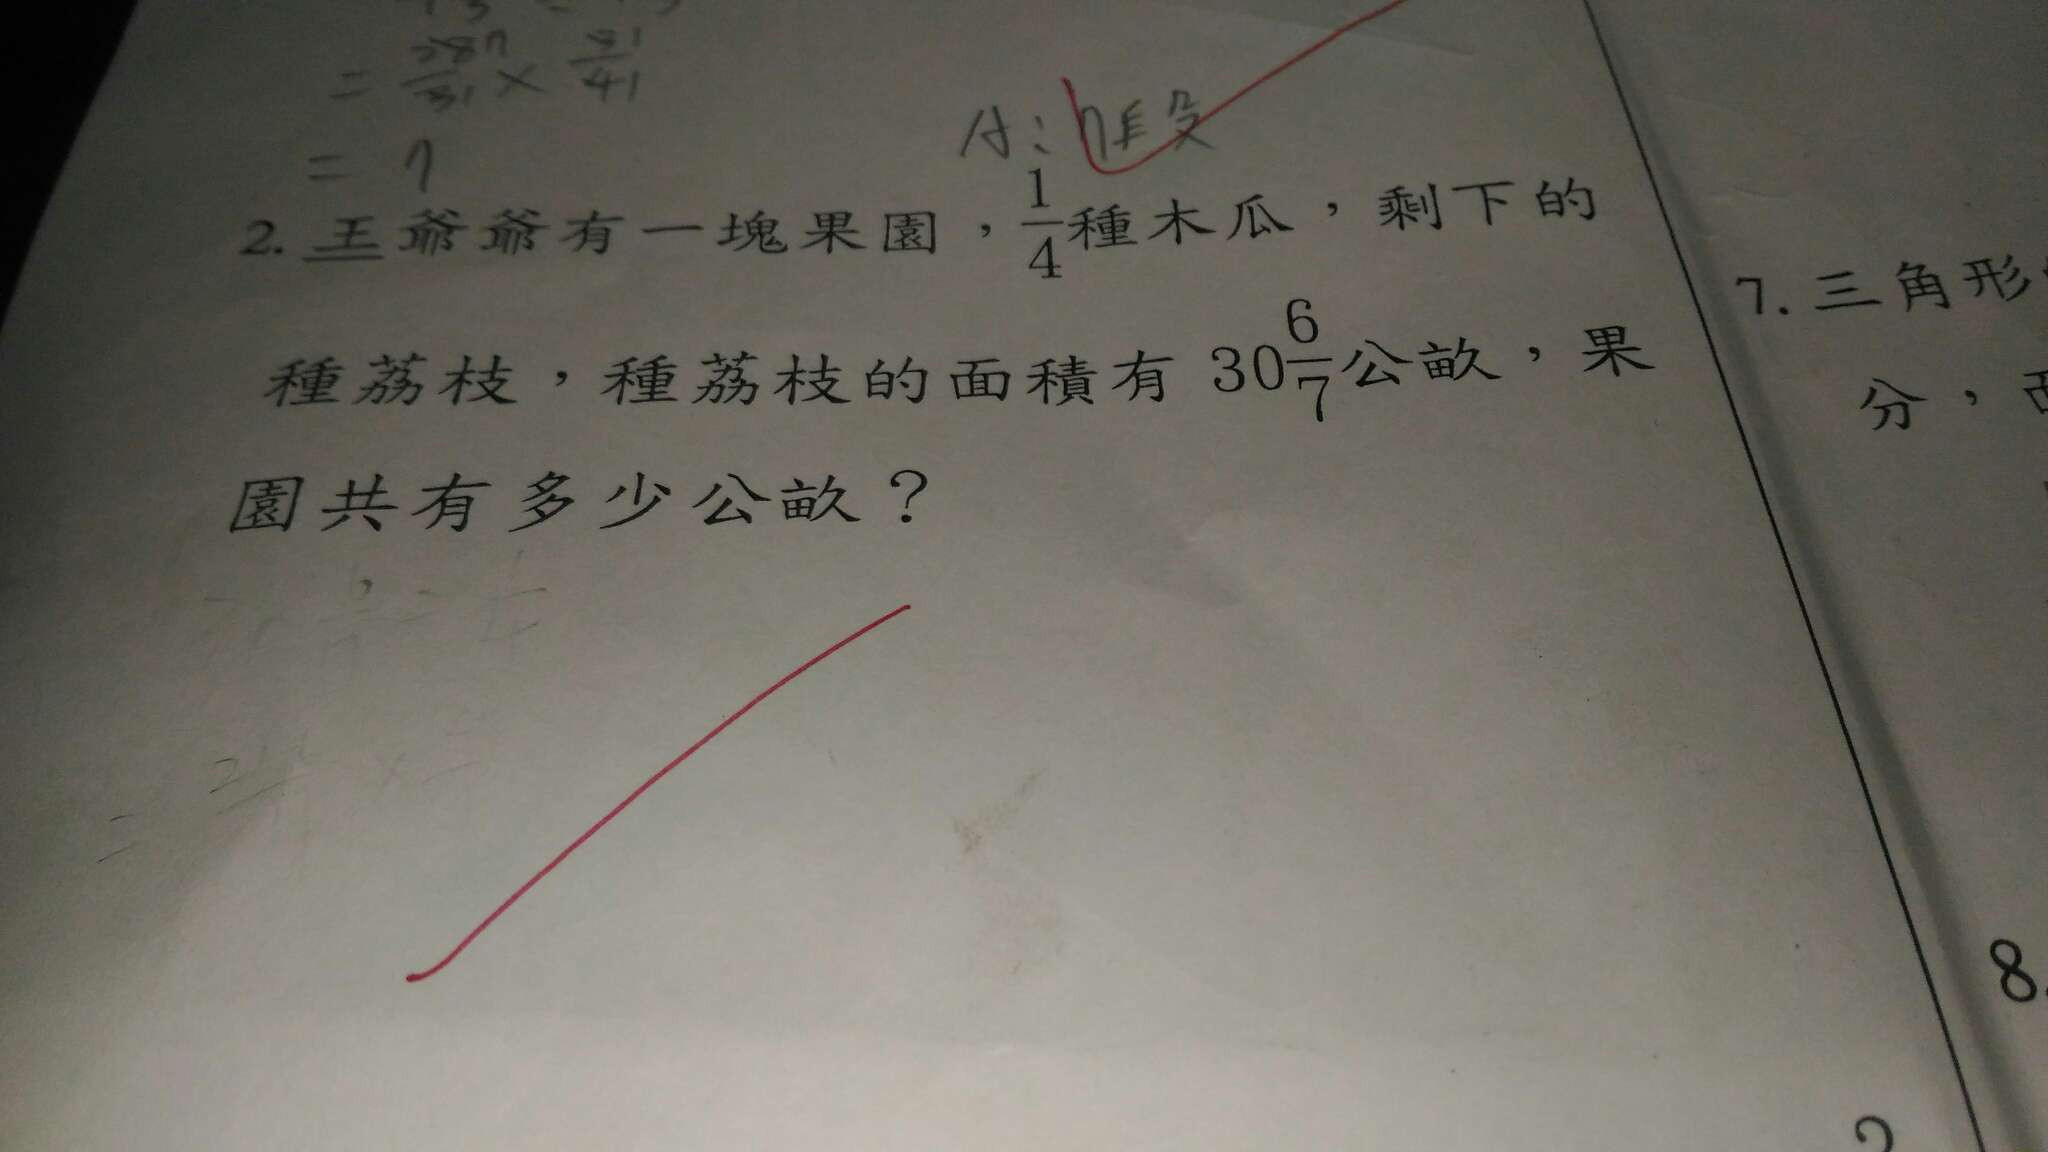 = 287/31 × 31/41
= 7
A：7年段
2. 王爺爺有一塊果園，1/4種木瓜，剩下的
種荔枝，種荔枝的面積有 30 6/7公畝，果
園共有多少公畝？
7. 三角形
分，
8.